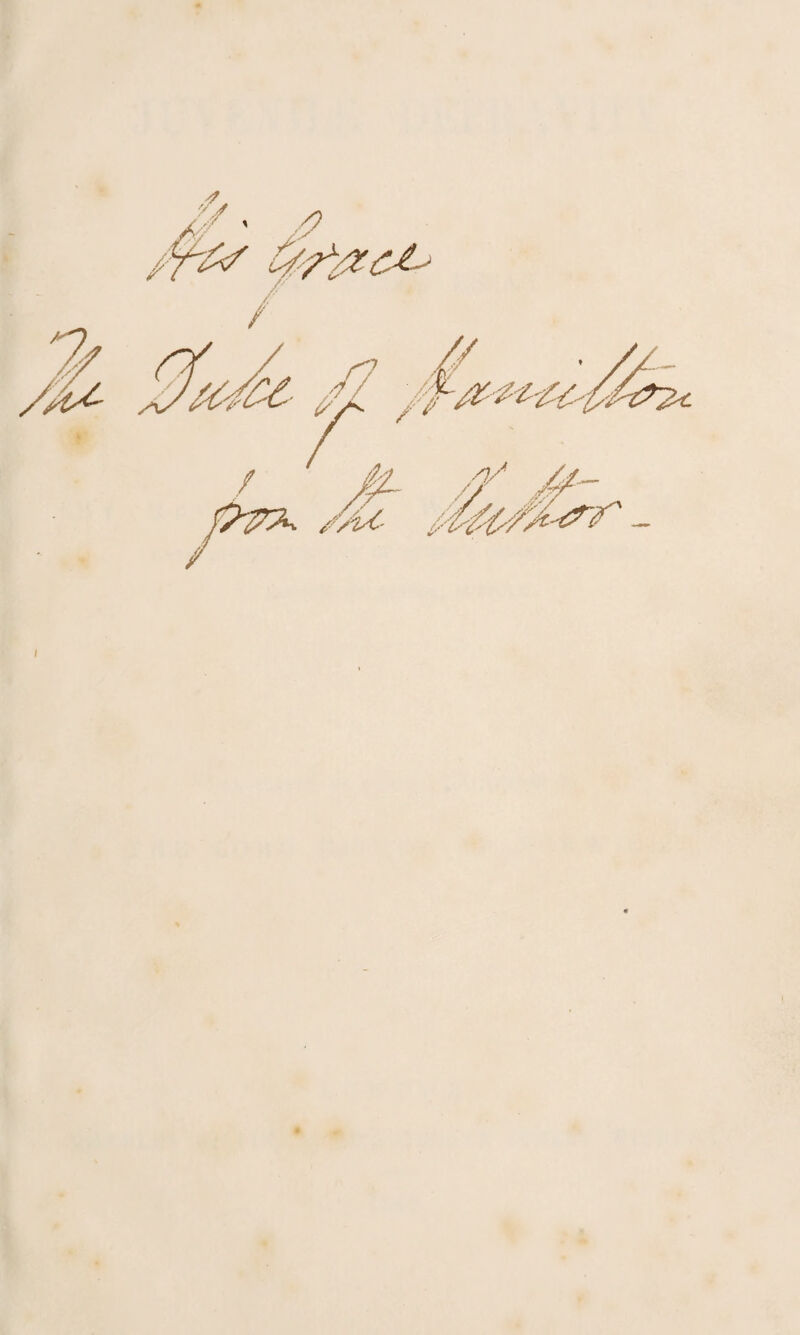 His Grace
The Duke of Hamilton
from the Author -